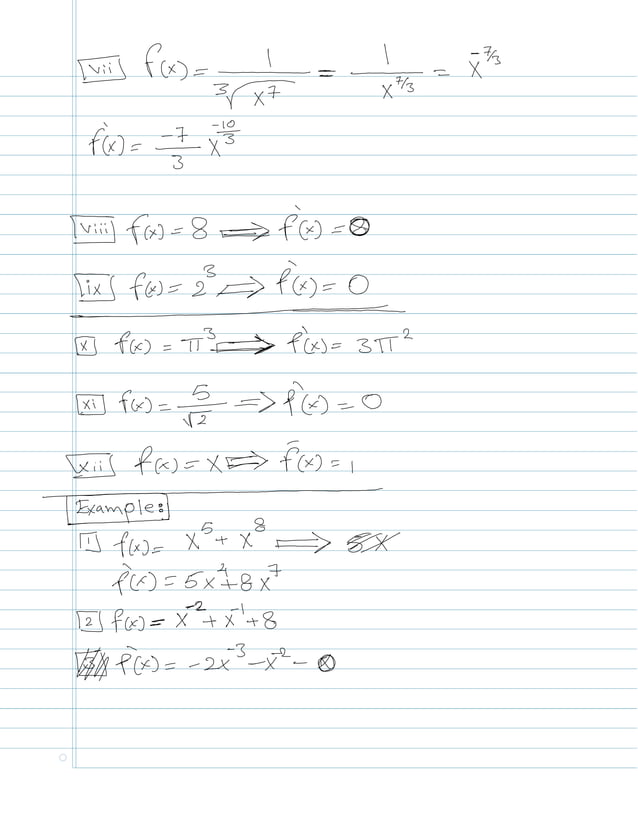 vii f(x) = 1/∛(x^7) = 1/x^(7/3) = x^(-7/3)
f`(x) = -7/3 x^(-10/3)
viii f(x) = 8 ⟹ f`(x) = 0
ix f(x) = 2^3 ⟹ f`(x) = 0
x f(x) = π^3 ⟹ f`(x) = 3π^2
xi f(x) = 5/√2 ⟹ f`(x) = 0
xii f(x) = x ⟹ f`(x) = 1
Example:
1 f(x) = x^5 + x^8 ⟹
f`(x) = 5x^4 + 8x^7
2 f(x) = x^-2 + x^-1 + 8
f`(x) = -2x^-3 - x^-2 - 0